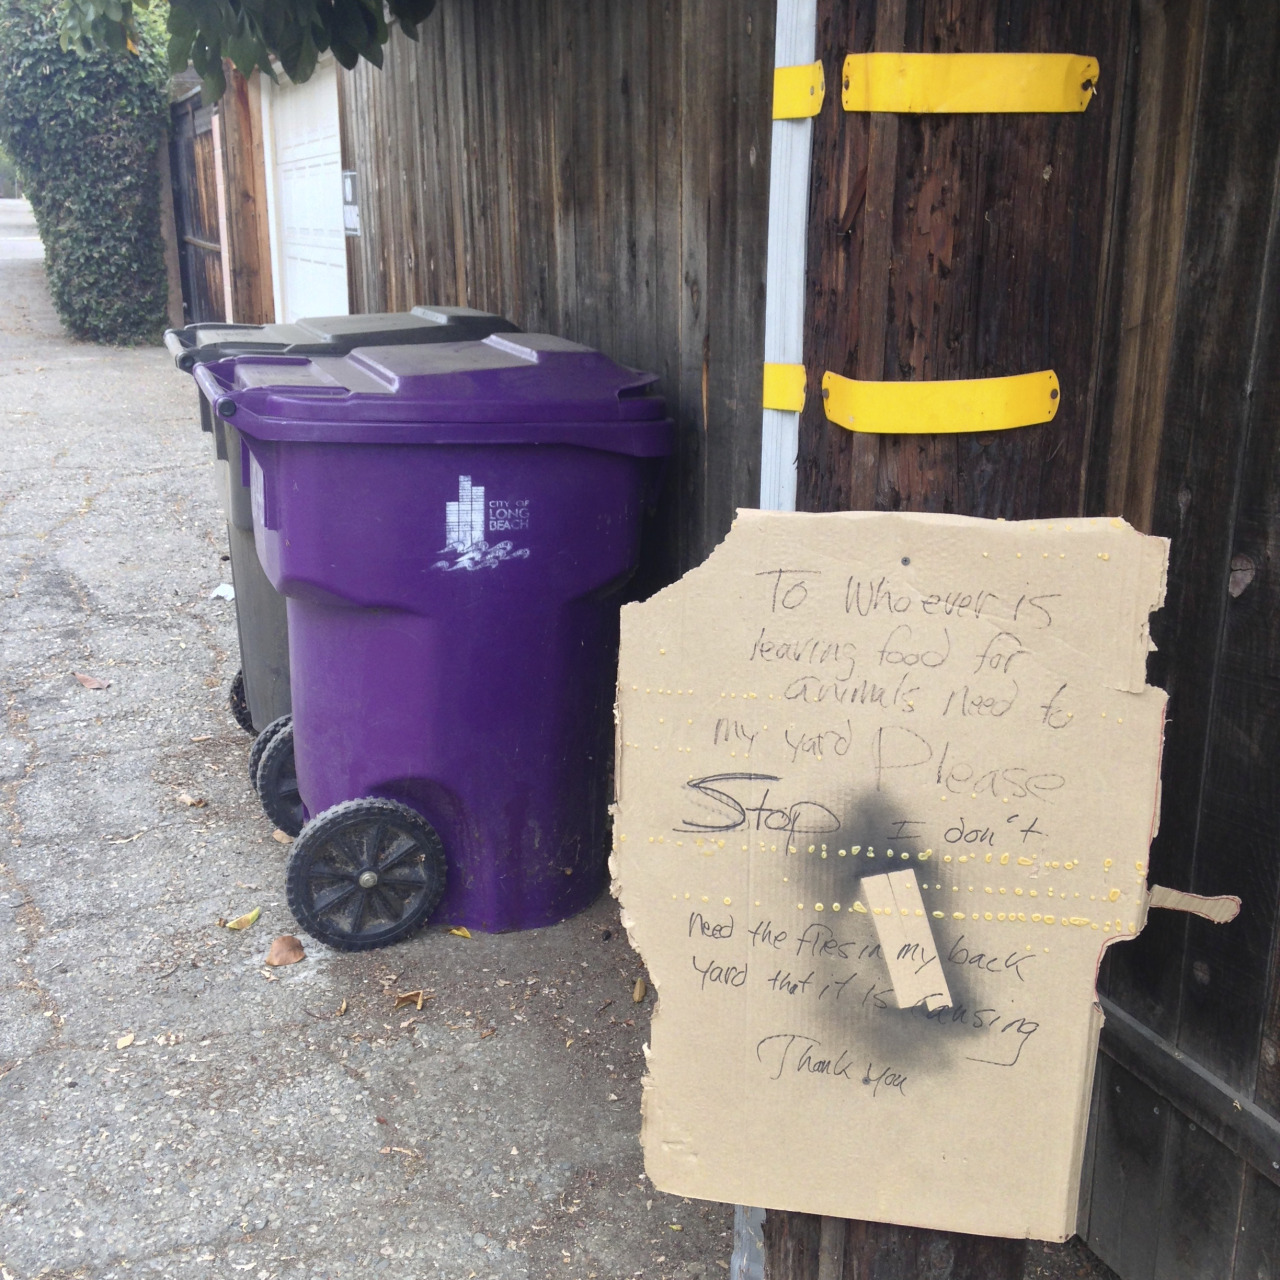 CITY OF
LONG
BEACH
To Whoever is
leaving food for
animals next to
my yard Please
Stop I don't
need the flies in my back
yard that it is causing
Thank you